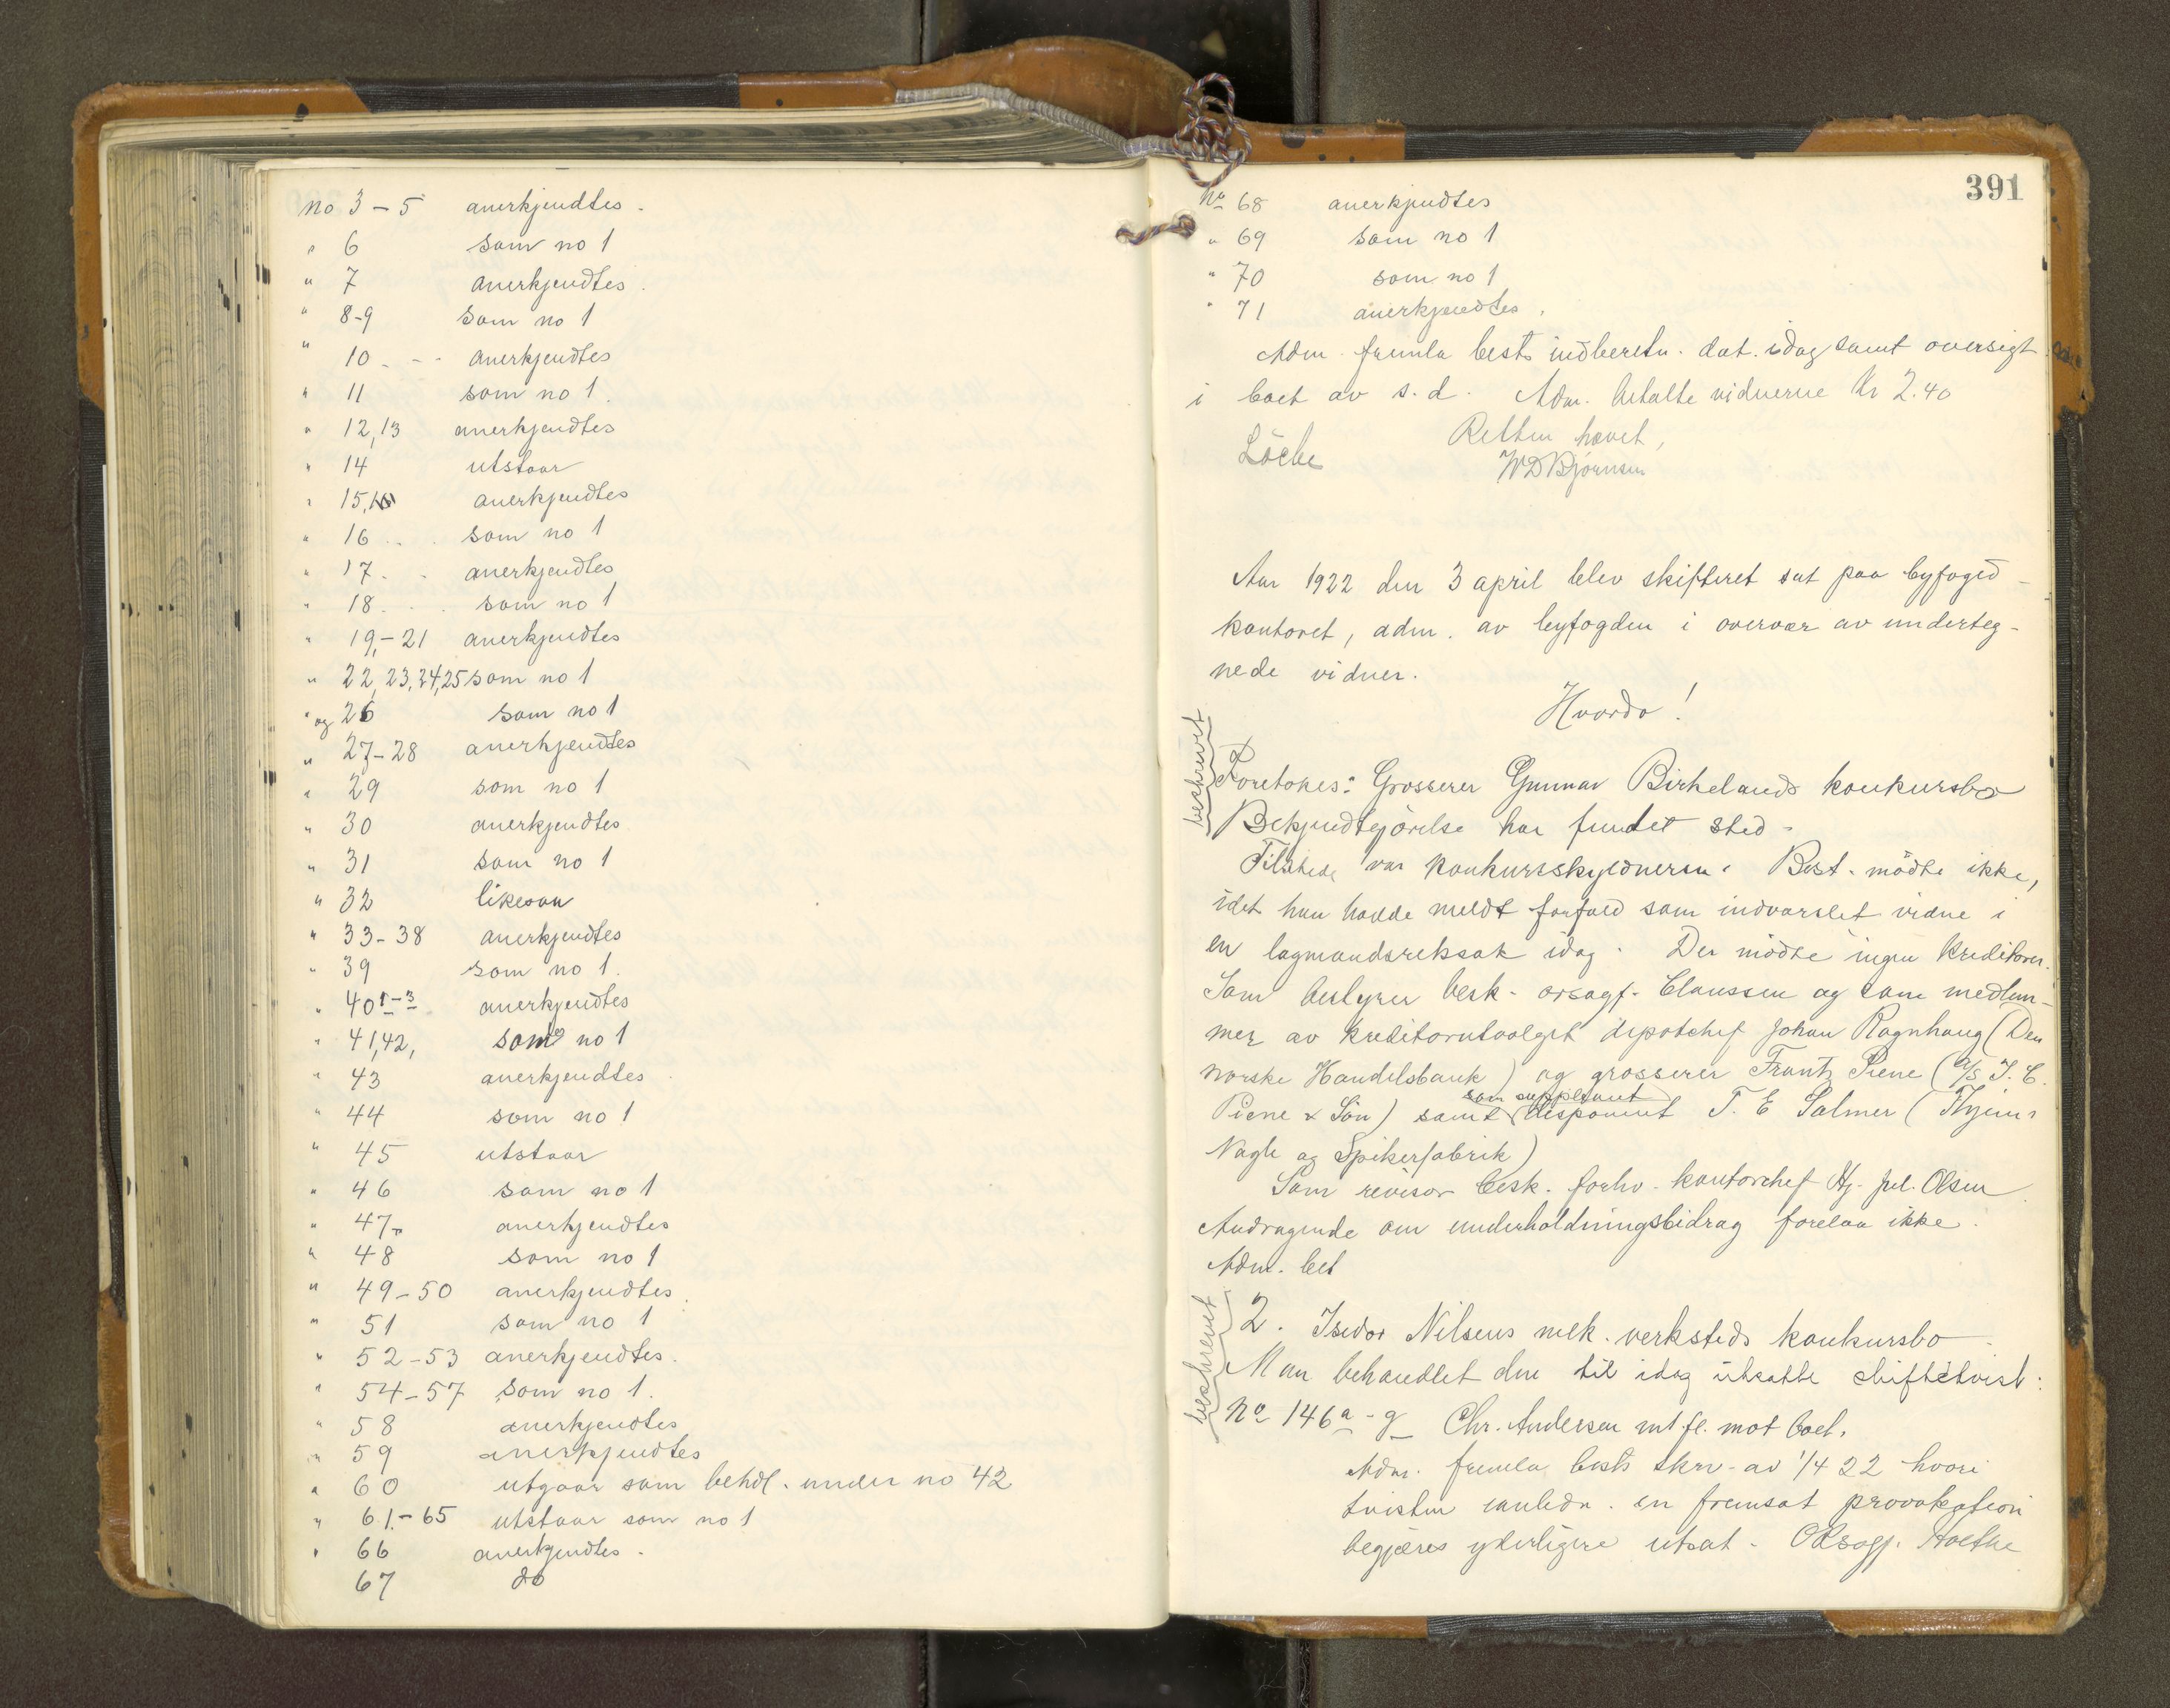 no 3-5 anerkjendtes.
" 6 som no 1
" 7 anerkjendtes.
" 8-9 som no 1
" 10 - - anerkjendtes
" 11 som no 1.
" 12,13 anerkjendtes
" 14 utstaar
" 15, anerkjendtes
" 16 . . . som no 1
" 17 . . anerkjendtes
" 18 . . . som no 1
" 19,-21 anerkjendtes
" 22, 23, 24, 25 som no 1
" og 26 som no 1
" 27-28 anerkjendtes
" 29 som no 1
" 30 anerkjendtes
" 31 som no 1
" 32 likesaa
" 33-38 anerkjendtes
" 39 som no 1.
" 40 1-3 anerkjendtes
" 41,42, som no 1
" 43 anerkjendtes
" 44 som no 1
" 45 utstaar
" 46 som no 1
" 47 anerkjendtes
" 48 som no 1
" 49-50 anerkjendtes.
" 51 som no 1
" 52-53 anerkjendtes.
" 54-57 som no 1.
" 58 anerkjendtes
" 59 anerkjendtes
" 60 utgaar som behdl. under no 42
" 61.-65 utstaar som no 1
" 66 anerkjendtes.
67 do
391
No 68 anerkjendtes
" 69 som no 1
" 70 som no 1
" 71 anerkjendtes.
Adm. fremla bests indberetn. dat. idag samt oversigt
i boet av s.d. Adm. betalte vidnerne Kr 2.40
Retten hævet,
WDBjørnsen
Aar 1922 den 3 april blev skifteret sat paa byfoged-
kontoret, adm. av byfogden i overvær av underteg-
nede vidner.
Hvorda!
beskrevet
Foretokes: Grosserer Gunnar Birkelands konkursbo
Bekjendtgjörelse har fundet sted.
Tilstede var konkursskyldneren. Best. mödte ikke,
idet han hadde meldt forfald som indvarslet vidne i
en lagmandsretssak idag. Der mödte ingen kreditorer.
Som bestyrer besk. orsagf. Claussen og som medlem-
mer av kreditorutvalget depotchef Johan Rognhaug (Den
norske Handelsbank) og grosserer Frantz Piene (A/S I. C.
Piene & Sön) samt som suppleant disponent T. E Salmer (Thjems
Nagle og Spikerfabrik)
Som revisor besk. forhv. kontorchef Hj. Jul. Olsen
Andragende om underholdningsbidrag forelaa ikke.
Adm. bet
beskrevet
2. Isidor Nilsens mek. verksteds konkursbo
Man behandlet den til idag utsatte skiftetvist:
No 146 a-g Chr. Andersen mfl. mot boet.
Adm. fremla bests skrv. av 1/4 22 hvori
tvisten anledn. en fremsat provokation
begjæres yderligere utsat. ORsagf.